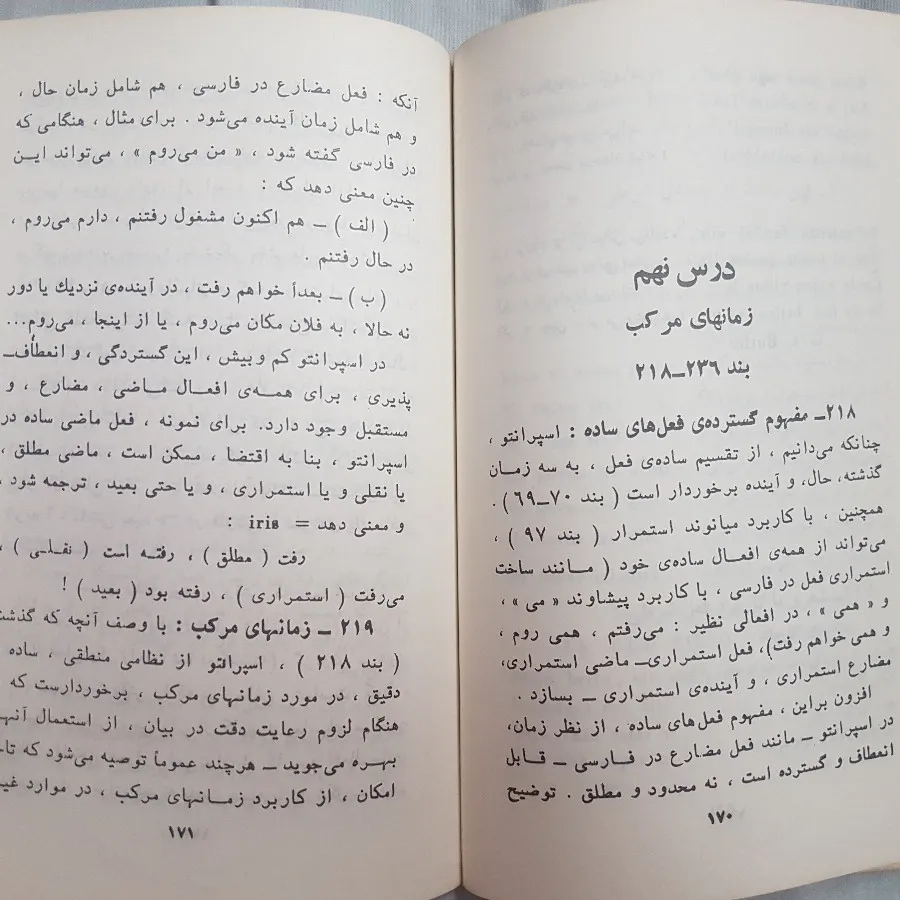 درس نهم
زمانهای مرکب
بند ۲۳۶ــ۲۱۸
۲۱۸ــ مفهوم گسترده‌ی فعل‌های ساده : اسپرانتو ،
چنانکه می‌دانیم ، از تقسیم ساده‌ی فعل ، به سه زمان
گذشته، حال، و آینده برخوردار است ( بند ۷۰ــ۶۹ ) .
همچنین ، با کاربرد میانوند استمرار ( بند ۹۷ ) ،
می‌تواند از همه‌ی افعال ساده‌ی خود ( مانند ساخت
استمراری فعل در فارسی ، با کاربرد پیشاوند « می » ،
و « همی » ، در افعالی نظیر : می‌رفتم ، همی روم ،
و همی خواهم رفت)، فعل استمراری‌ــ ماضی استمراری،
مضارع استمراری ، و آینده‌ی استمراری ــ بسازد .
افزون براین ، مفهوم فعل‌های ساده ، از نظر زمان،
در اسپرانتو ــ مانند فعل مضارع در فارسی ــ قابل
انعطاف و گسترده است ، نه محدود و مطلق . توضیح
۱۷۰
آنکه : فعل مضارع در فارسی ، هم شامل زمان حال ،
و هم شامل زمان آینده می‌شود . برای مثال ، هنگامی که
در فارسی گفته شود ، « من می‌روم » ، می‌تواند این
چنین معنی دهد که :
( الف ) ــ هم اکنون مشغول رفتنم ، دارم می‌روم ،
در حال رفتنم .
( ب ) ــ بعداً خواهم رفت ، در آینده‌ی نزدیك یا دور
نه حالا ، به فلان مکان می‌روم ، یا از اینجا ، می‌روم...
در اسپرانتو کم و بیش ، این گستردگی ، و انعطاف‌ــ
پذیری ، برای همه‌ی افعال ماضی ، مضارع ، و
مستقبل وجود دارد. برای نمونه ، فعل ماضی ساده در
اسپرانتو ، بنا به اقتضا ، ممکن است ، ماضی مطلق ،
یا نقلی و یا استمراری ، و یا حتی بعید ، ترجمه شود ،
و معنی دهد = iris :
رفت ( مطلق ) ، رفته است ( نقلی ) ،
می‌رفت ( استمراری ) ، رفته بود ( بعید ) !
۲۱۹ ــ زمانهای مرکب : با وصف آنچه که گذشت
( بند ۲۱۸ ) ، اسپرانتو از نظامی منطقی ، ساده
دقیق ، در مورد زمانهای مرکب ، برخوردارست که
هنگام لزوم رعایت دقت در بیان ، از استعمال آنها
بهره می‌جوید ــ هرچند عموماً توصیه می‌شود که تا
امکان ، از کاربرد زمانهای مرکب ، در موارد غیر
۱۷۱